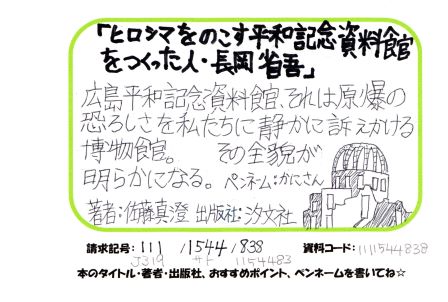 「ヒロシマをのこす平和記念資料館
をつくった人・長岡省吾」
広島平和記念資料館、それは原爆の
恐ろしさを私たちに静かに訴えかける
博物館。 その全貌が
明らかになる。 ペンネーム:かにさん
著者:佐藤真澄 出版社:汐文社
請求記号: 111 /1544/838 資料コード: 1111544838
J319 サト 1154483
本のタイトル・著者・出版社、おすすめポイント、ペンネームを書いてね☆